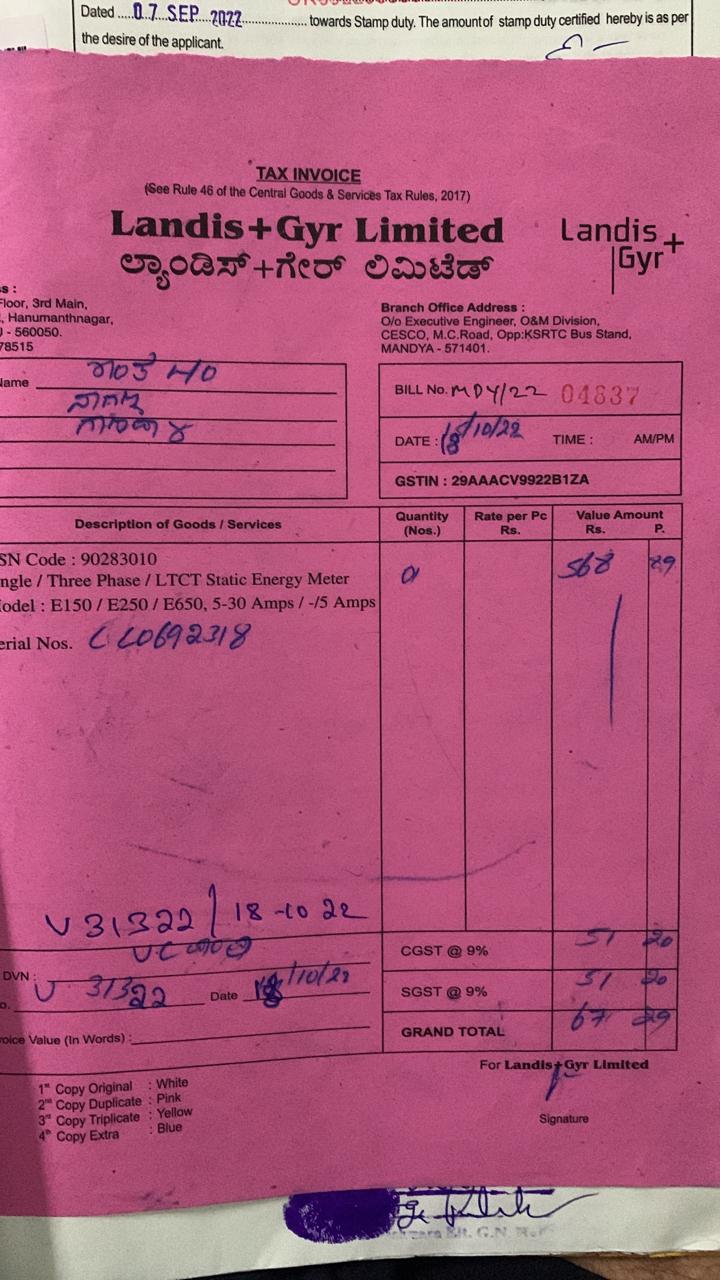 Dated .....07 SEP 2022.................. towards Stamp duty. The amount of stamp duty certified hereby is as per
the desire of the applicant.
TAX INVOICE
(See Rule 46 of the Central Goods & Services Tax Rules, 2017)
Landis+Gyr Limited
Landis+
Gyr
ಲ್ಯಾಂಡಿಸ್+ಗೇರ್ ಲಿಮಿಟೆಡ್
s :
loor, 3rd Main,
, Hanumanthnagar,
- 560050.
78515
Branch Office Address :
O/o Executive Engineer, O&M Division,
CESCO, M.C.Road, Opp:KSRTC Bus Stand,
MANDYA - 571401.
ame
BILL No. MDY/22 04837
DATE : 18/10/22 TIME : AM/PM
GSTIN : 29AAACV9922B1ZA
Description of Goods / Services
Quantity (Nos.)
Rate per Pc Rs.
Value Amount Rs. P.
SN Code : 90283010
ngle / Three Phase / LTCT Static Energy Meter
odel : E150 / E250 / E650, 5-30 Amps / -/5 Amps
01 568 89
erial Nos. CL0692318
V 31322 / 18-10 22
CGST @ 9% 51 20
DVN :
U 31322 Date 18/10/22
SGST @ 9% 51 20
GRAND TOTAL 67 29
oice Value (In Words) :
For Landis+Gyr Limited
1st Copy Original : White
2nd Copy Duplicate : Pink
3rd Copy Triplicate : Yellow
4th Copy Extra : Blue
Signature